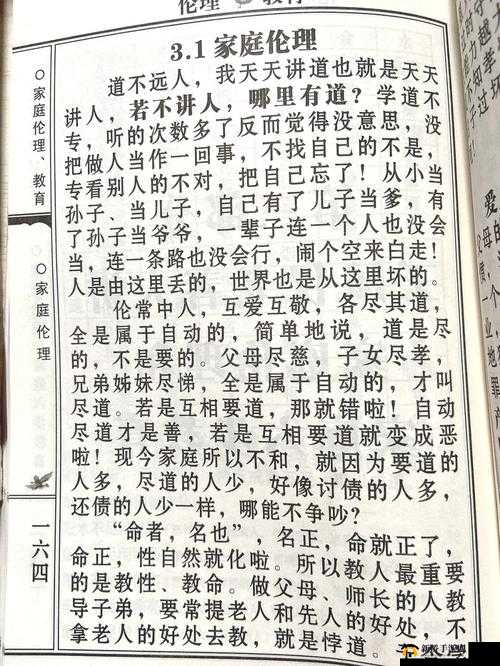 伦理 教育
3.1 家庭伦理
道不远人，我天天讲道也就是天天
讲人，若不讲人，哪里有道？学道不
专，听的次数多了反而觉得没意思，没
把做人当作一回事，不找自己的不是，
专看别人的不对，把自己忘了！从小当
孙子、当儿子，自己有了儿子当爹，有
了孙子当爷爷，一辈子连一个人也没会
当，连一条路也没会行，闹个空来白走！
人是由这里丢的，世界也是从这里坏的。
伦常中人，互爱互敬，各尽其道，
全是属于自动的，简单地说，道是尽
的，不是要的。父母尽慈，子女尽孝，
兄弟姊妹尽悌，全是属于自动的，才叫
尽道。若是互相要道，那就错啦！自动
尽道才是善，若是互相要道就变成恶
啦！现今家庭所以不和，就因为要道的
人多，尽道的人少，好像讨债的人多，
还债的人少一样，哪能不争吵？
“命者，名也”，名正，命就正了，
命正，性自然就化啦。所以教人最重要
的是教性、教命。做父母、师长的人教
导子弟，要常提老人和先人的好处，不
拿老人的好处去教，就是悖道。
○家庭伦理、教育
○家庭伦理
一六四